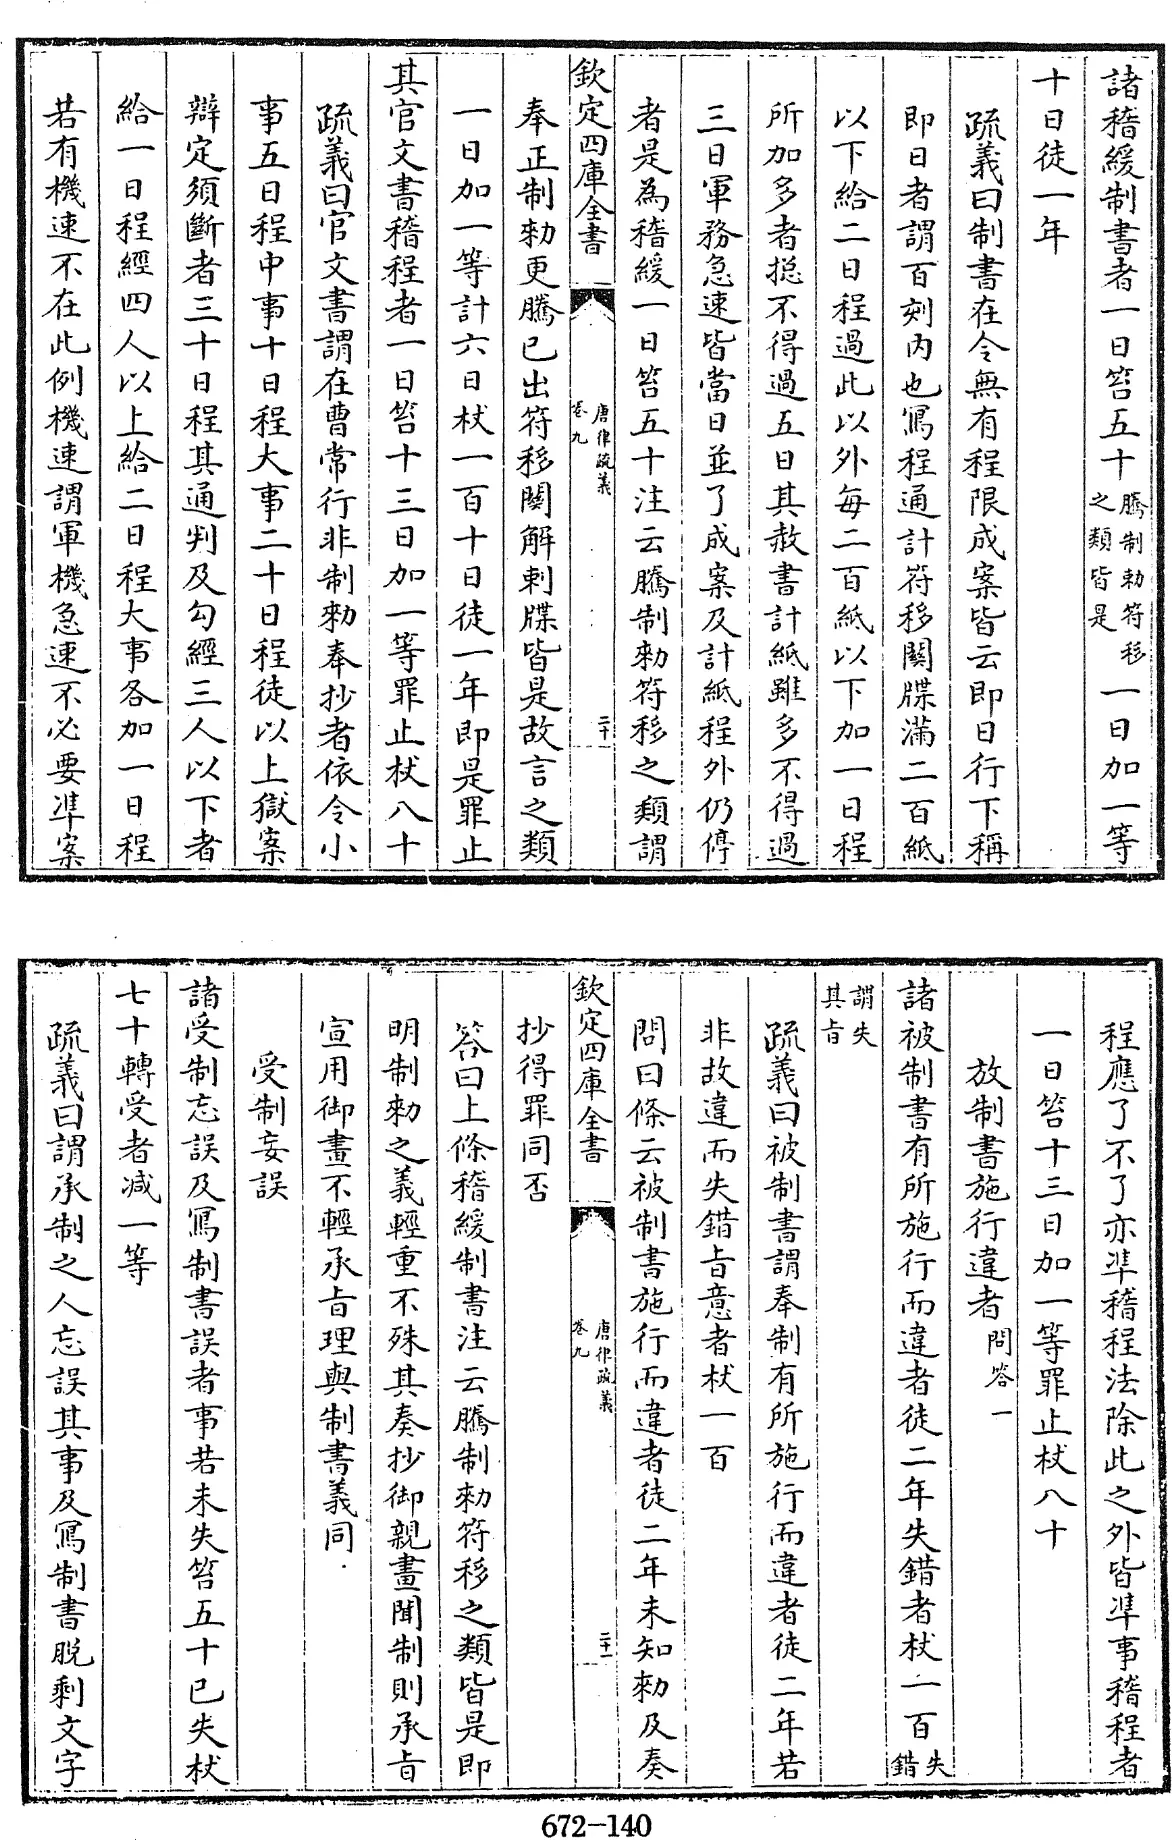 諸稽緩制書者一日笞五十謄制勅符移之類皆是一日加一等
十日徒一年
疏義曰制書在令無有程限成案皆云即日行下稱
即日者謂百刻内也寫程通計符移關牒滿二百紙
以下給二日程過此以外每二百紙以下加一日程
所加多者揔不得過五日其赦書計紙雖多不得過
三日軍務急速皆當日並了成案及計紙程外仍停
者是為稽緩一日笞五十注云騰制勅符移之類謂
欽定四庫全書 唐律疏義 卷九 二十
奉正制勅更騰已出符移關解刺牒皆是故言之類
一日加一等計六日杖一百十日徒一年即是罪止
其官文書稽程者一日笞十三日加一等罪止杖八十
疏義曰官文書謂在曹常行非制勅奉抄者依令小
事五日程中事十日程大事二十日程徒以上獄案
辯定須斷者三十日程其通判及勾經三人以下者
給一日程經四人以上給二日程大事各加一日程
若有機速不在此例機速謂軍機急速不必要準案
程應了不了亦準稽程法除此之外皆準事稽程者
一日笞十三日加一等罪止杖八十
放制書施行違者問答一
諸被制書有所施行而違者徒二年失錯者杖一百失錯
謂失其旨
疏義曰被制書謂奉制有所施行而違者徒二年若
非故違而失錯旨意者杖一百
問曰條云被制書施行而違者徒二年未知勅及奏
欽定四庫全書 唐律疏義 卷九 二十一
抄得罪同否
答曰上條稽緩制書注云騰制勅符移之類皆是即
明制勅之義輕重不殊其奏抄御親畫聞制則承旨
宣用御畫不輕承旨理與制書義同
受制妄誤
諸受制忘誤及寫制書誤者事若未失笞五十已失杖
七十轉受者減一等
疏義曰謂承制之人忘誤其事及寫制書脱剩文字
672-140